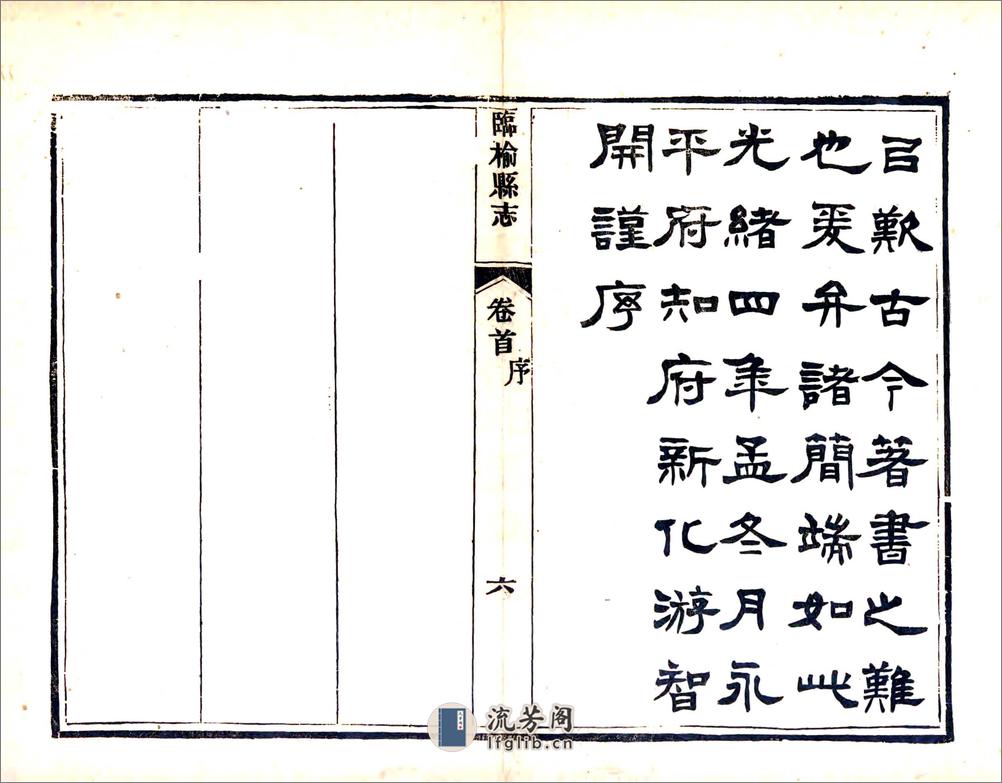 㠯歎古今著書之難
也爰弁諸簡端如此
光緒四年孟冬月永
平府知府新化游智
開謹序
臨榆縣志
卷首
序
六
流芳阁
lfglib.cn